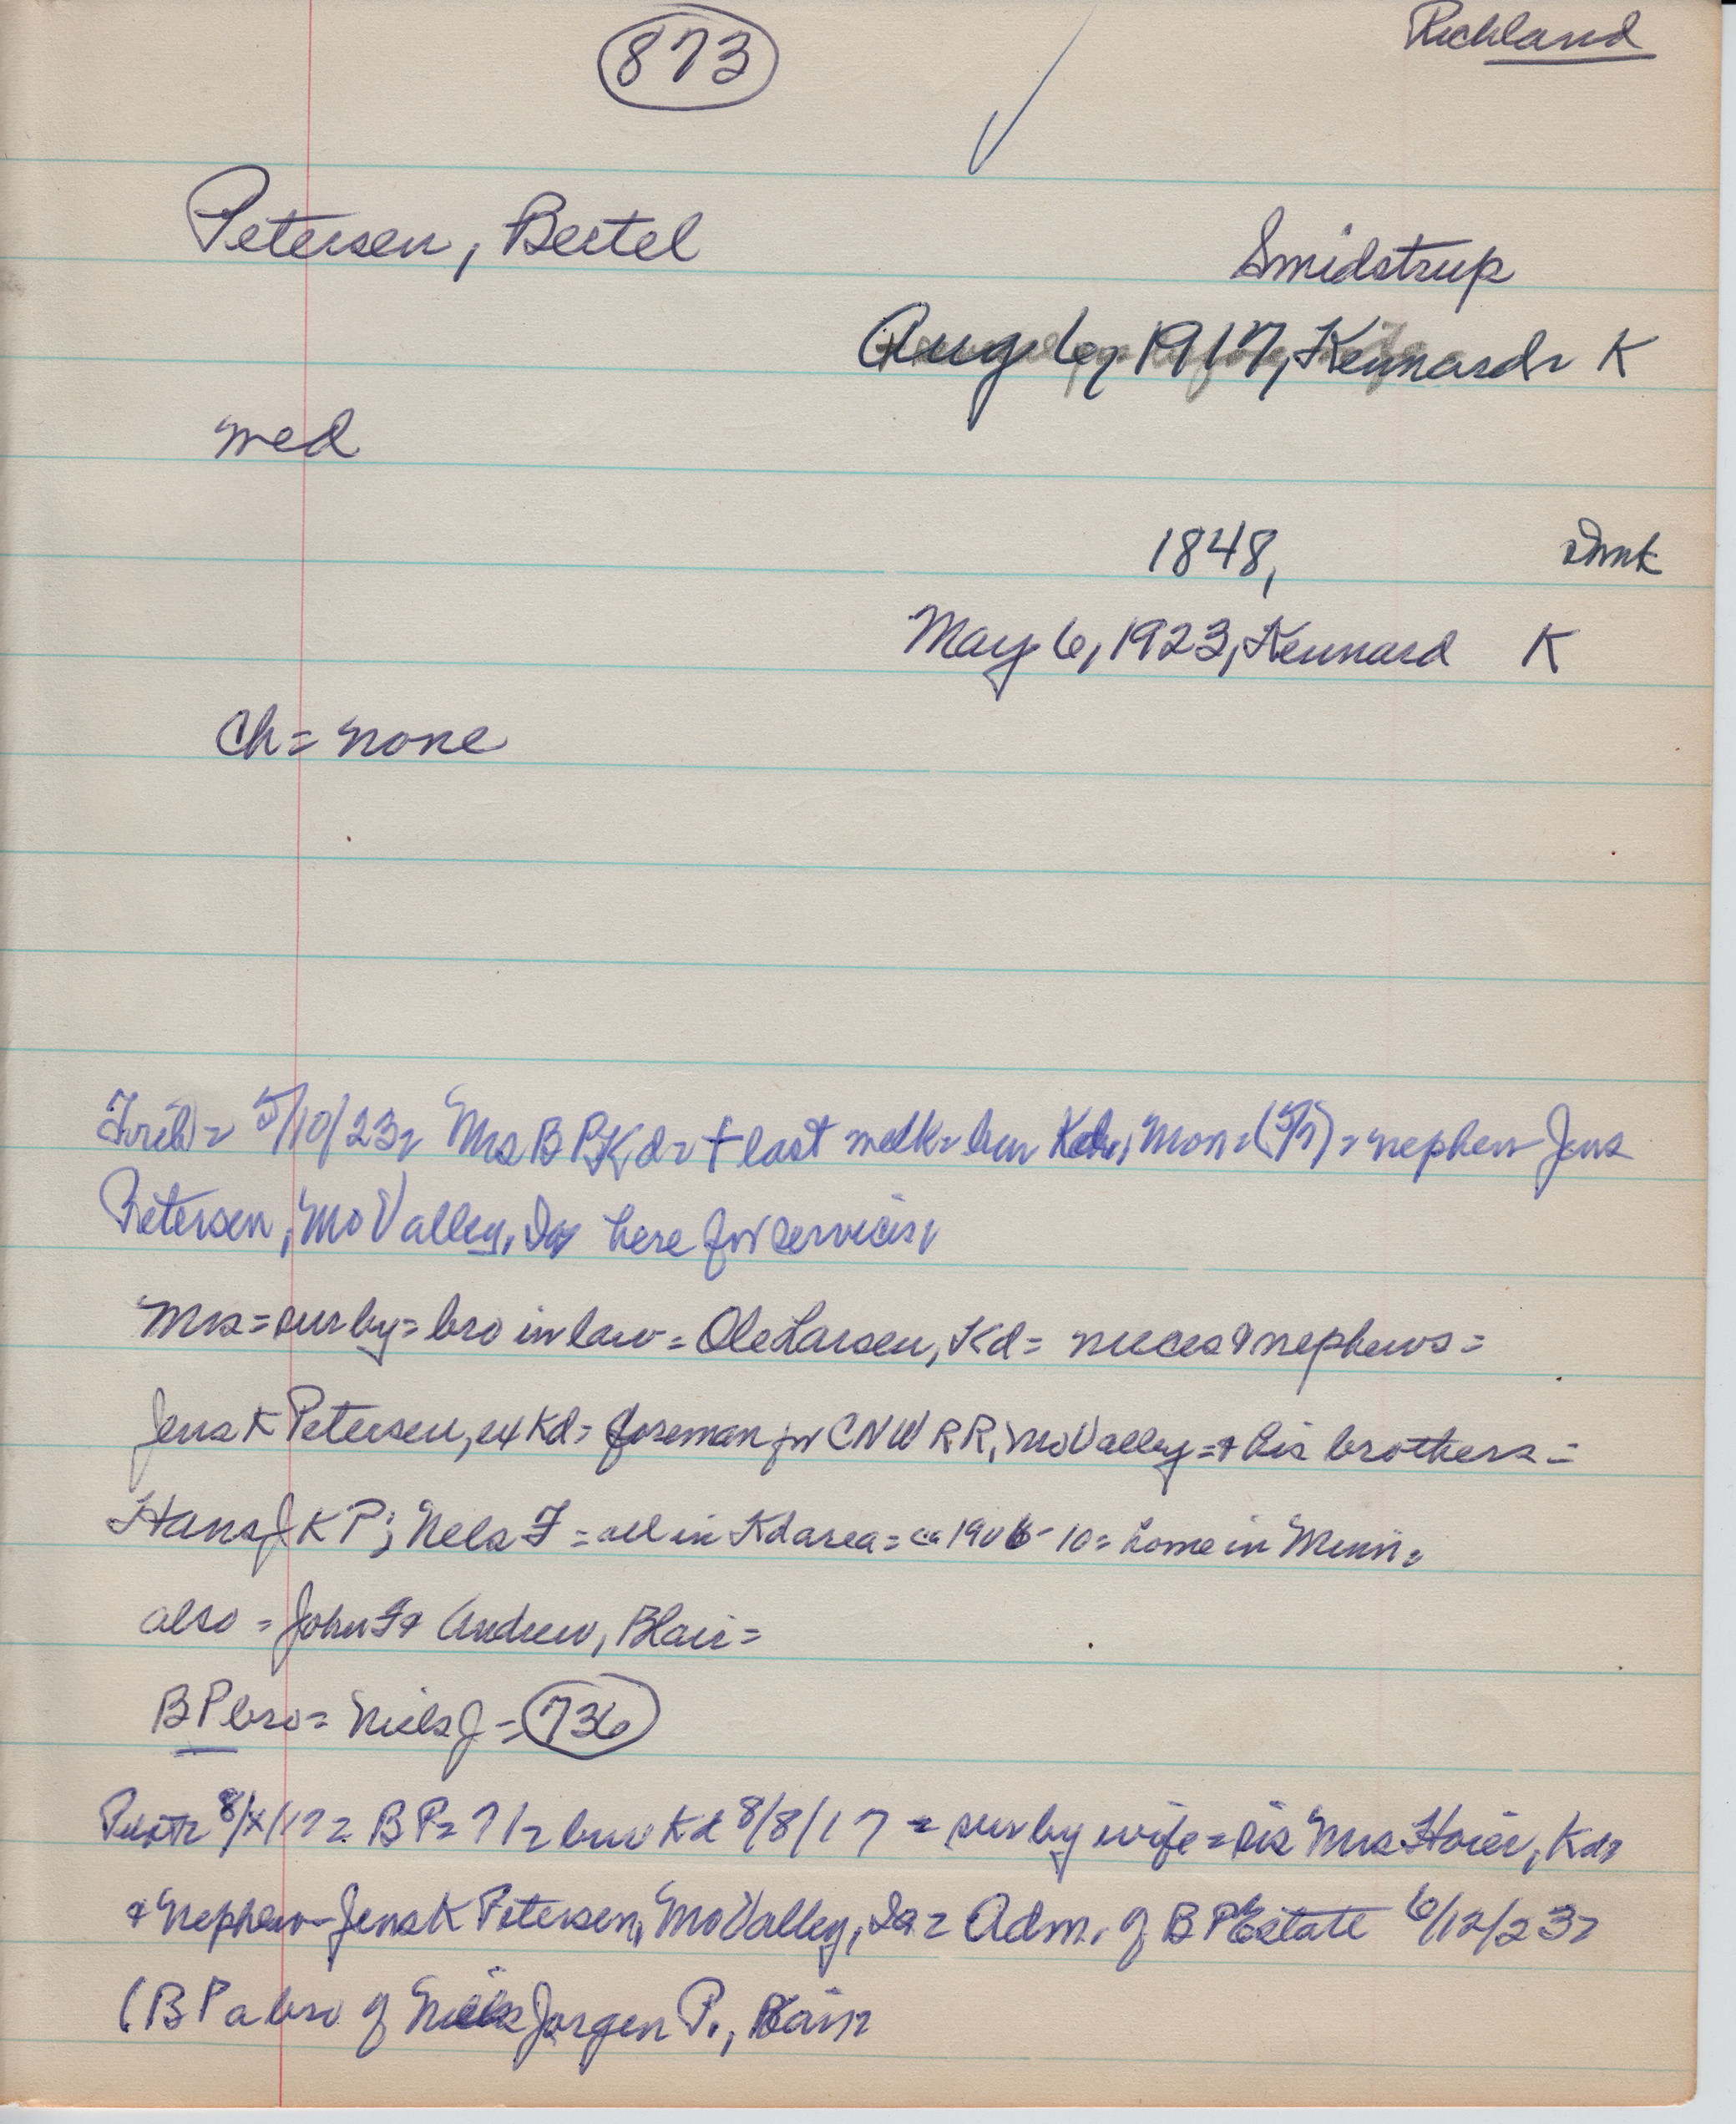 873
Richland
Petersen, Bertel
Smidstrup
Aug 6, 1917, Kennard K
med
1848, Dmk
May 6, 1923, Kennard K
Ch = none
Trib = 5/10/23 = Mrs B P Kd = † last week = bur Kd, Mon = (5/7) = nephew Jens
Petersen, Mo Valley, Ia here for services
Mrs = sur by = bro in law = Ole Larsen, Kd = nieces & nephews =
Jens K Petersen, ex Kd = foreman for CNW RR, Mo Valley = & his brothers =
Hans J K P; Nels F = all in Kd area = ca 1906-10 = home in Minn =
also = John F & Andrew, Blair =
BP bro = Niels J = 736
8/ /17 = BP = 71 = bur Kd 8/8/17 = sur by wife = sis Mrs Hoier, Kd =
& nephew - Jens K Petersen, Mo Valley, Ia = Adm. of BP Estate 6/12/23 =
(BP a bro of Niels Jorgen P., Blair